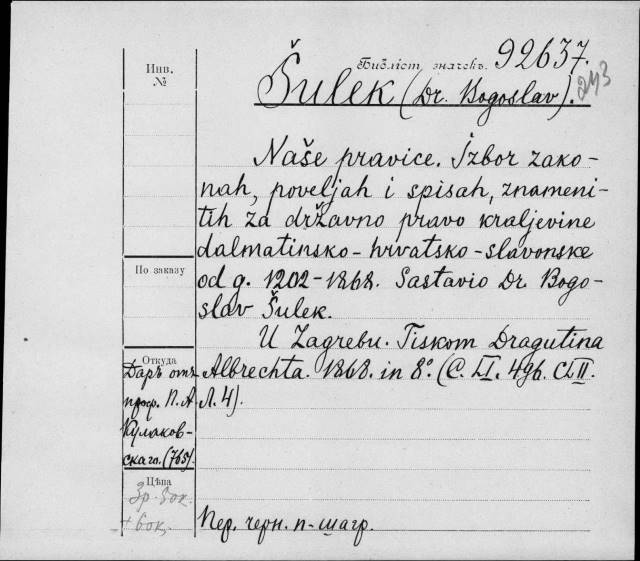 Инв.
№
Библіот. значекъ. 92637.
243
Šulek (Dr. Bogoslav).
Naše pravice. Izbor zako-
nah, poveljah i spisah, znameni-
tih za državno pravo kraljevine
dalmatinsko-hrvatsko-slavonske
od g. 1202-1868. Sastavio Dr. Bogo-
slav Šulek.
U Zagrebu. Tiskom Dragutina
Albrechta. 1868. in 8º. (C. LI. 496. CLII.
Л. 4).
По заказу
Откуда
Даръ отъ
проф. П. А.
Кулаков-
скаго. (765).
Цѣна
Пер. черн. п-шагр.